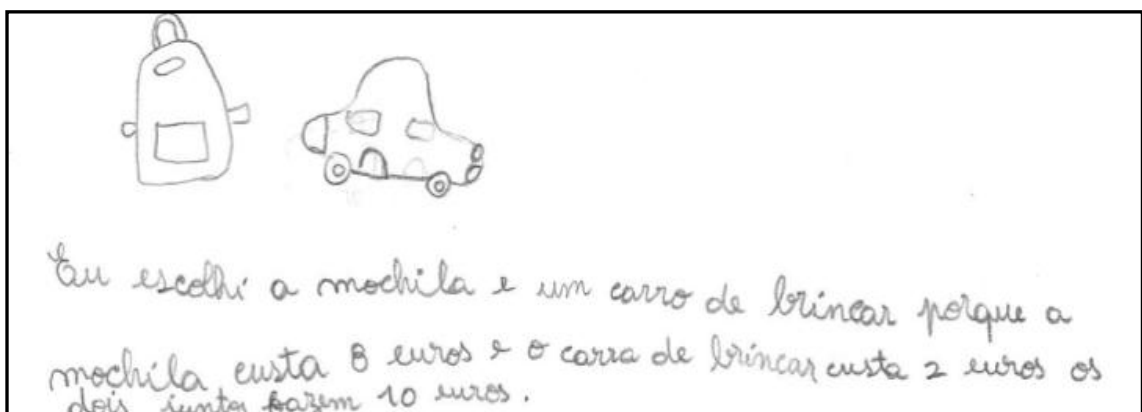 Eu escolhi a mochila e um carro de brincar porque a
mochila custa 8 euros e o carra de brincar custa 2 euros os
dois juntos fazem 10 euros.